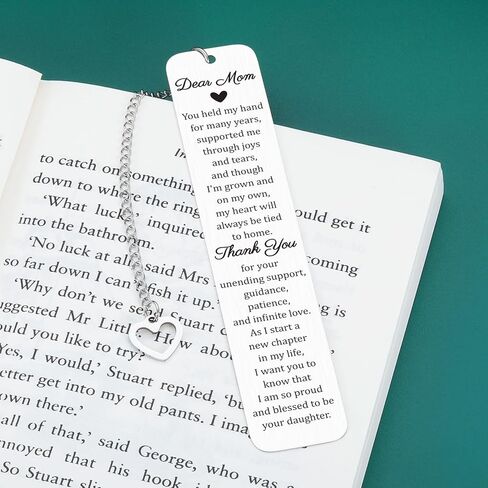 Dear Mom
You held my hand
for many years,
supported me
through joys
and tears,
and though
I'm grown and
on my own,
my heart will
always be tied
to home.
Thank You
for your
unending support,
guidance,
patience,
and infinite love.
As I start a
new chapter
in my life,
I want you to
know that
I am so proud
and blessed to be
your daughter.
to catch on something
down to where the ring get it
'What luck', inquired
into the bathroom.
'No luck at all', said Mrs coming
so far down I can't fish it up.'
'Why don't we send
suggested Mr Little How about
you like to try?'
Yes, I would,' Stuart replied, 'but
better get into my old pants. I
own there.'
all of that,' said George, who was a
that his hook
So Stuart